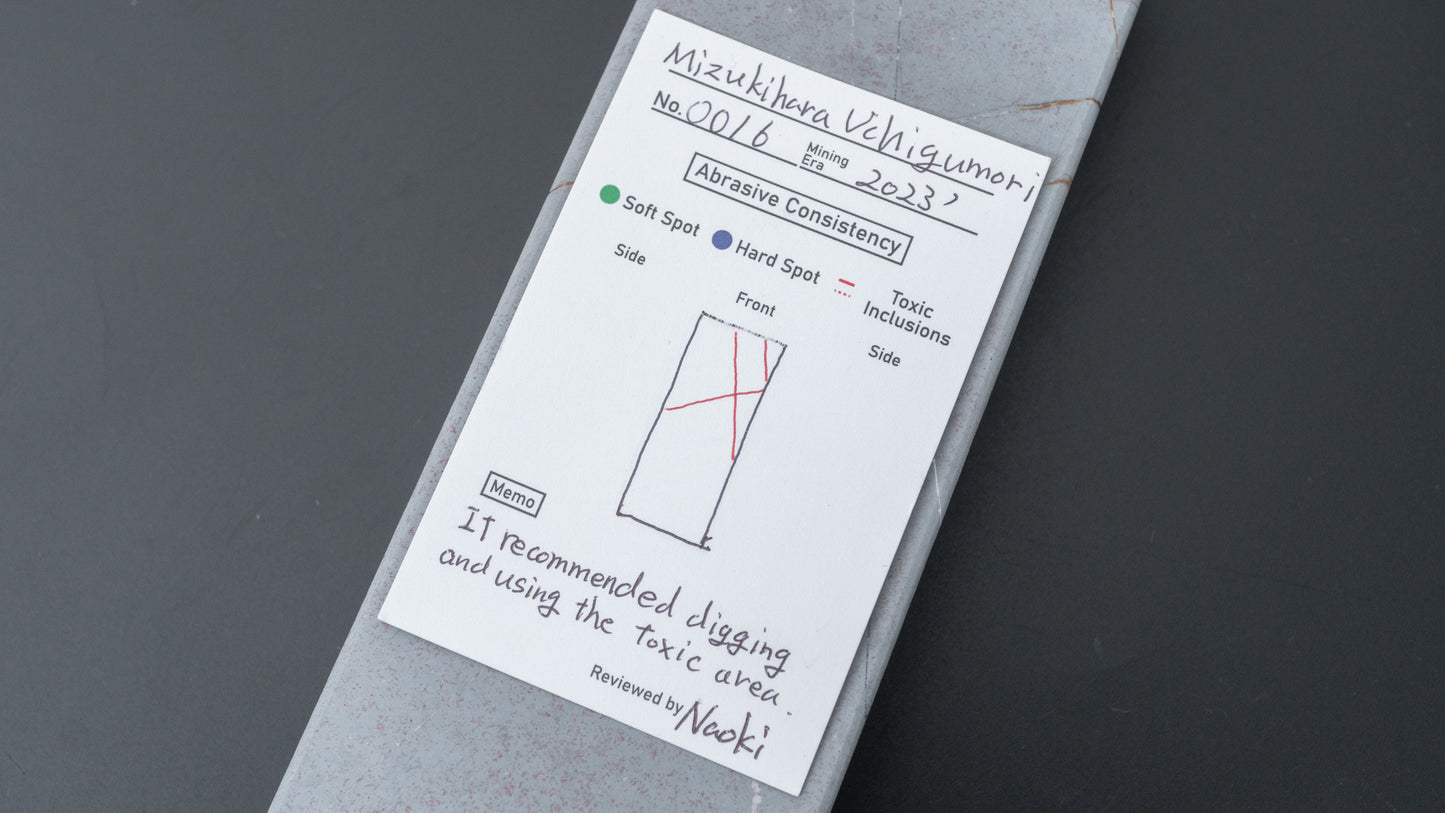 Mizukihara Uchigumori
No. 0016 Mining Era 2023'
Abrasive Consistency
Soft Spot Hard Spot Toxic Inclusions
Side Front Side
Memo
It recommended digging
and using the toxic area.
Reviewed by Naoki